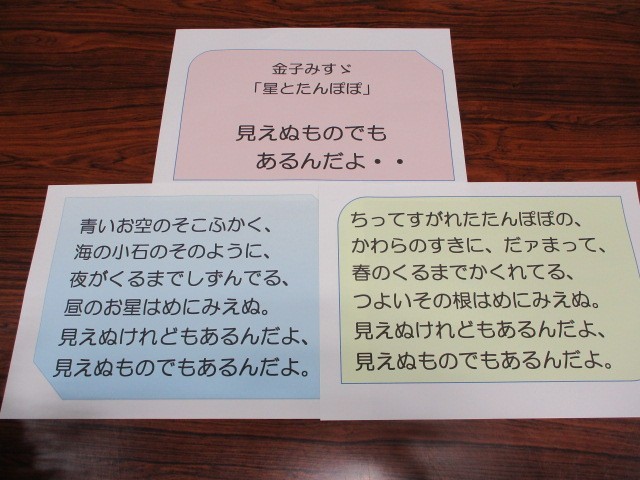 金子みすゞ
「星とたんぽぽ」
見えぬものでも
あるんだよ・・
青いお空のそこふかく、
海の小石のそのように、
夜がくるまでしずんでる、
昼のお星はめにみえぬ。
見えぬけれどもあるんだよ、
見えぬものでもあるんだよ。
ちってすがれたたんぽぽの、
かわらのすきに、だァまって、
春のくるまでかくれてる、
つよいその根はめにみえぬ。
見えぬけれどもあるんだよ、
見えぬものでもあるんだよ。